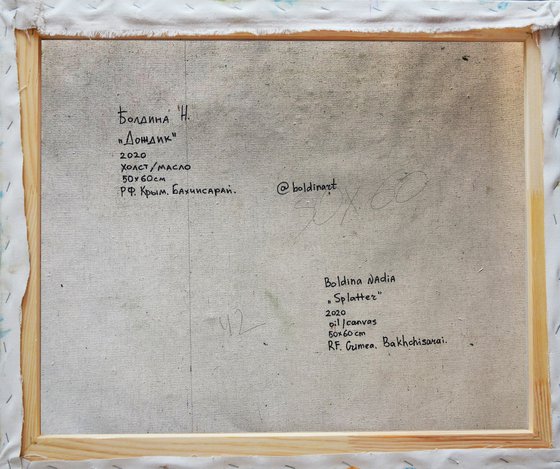 Болдина Н.
„Дождик"
2020
холст/масло
50x60см
РФ. Крым. Бахчисарай.
@boldinart
50 X 60
42
Boldina Nadia
„Splatter"
2020
oil/canvas
50x60 cm
RF. Crimea. Bakhchisarai.